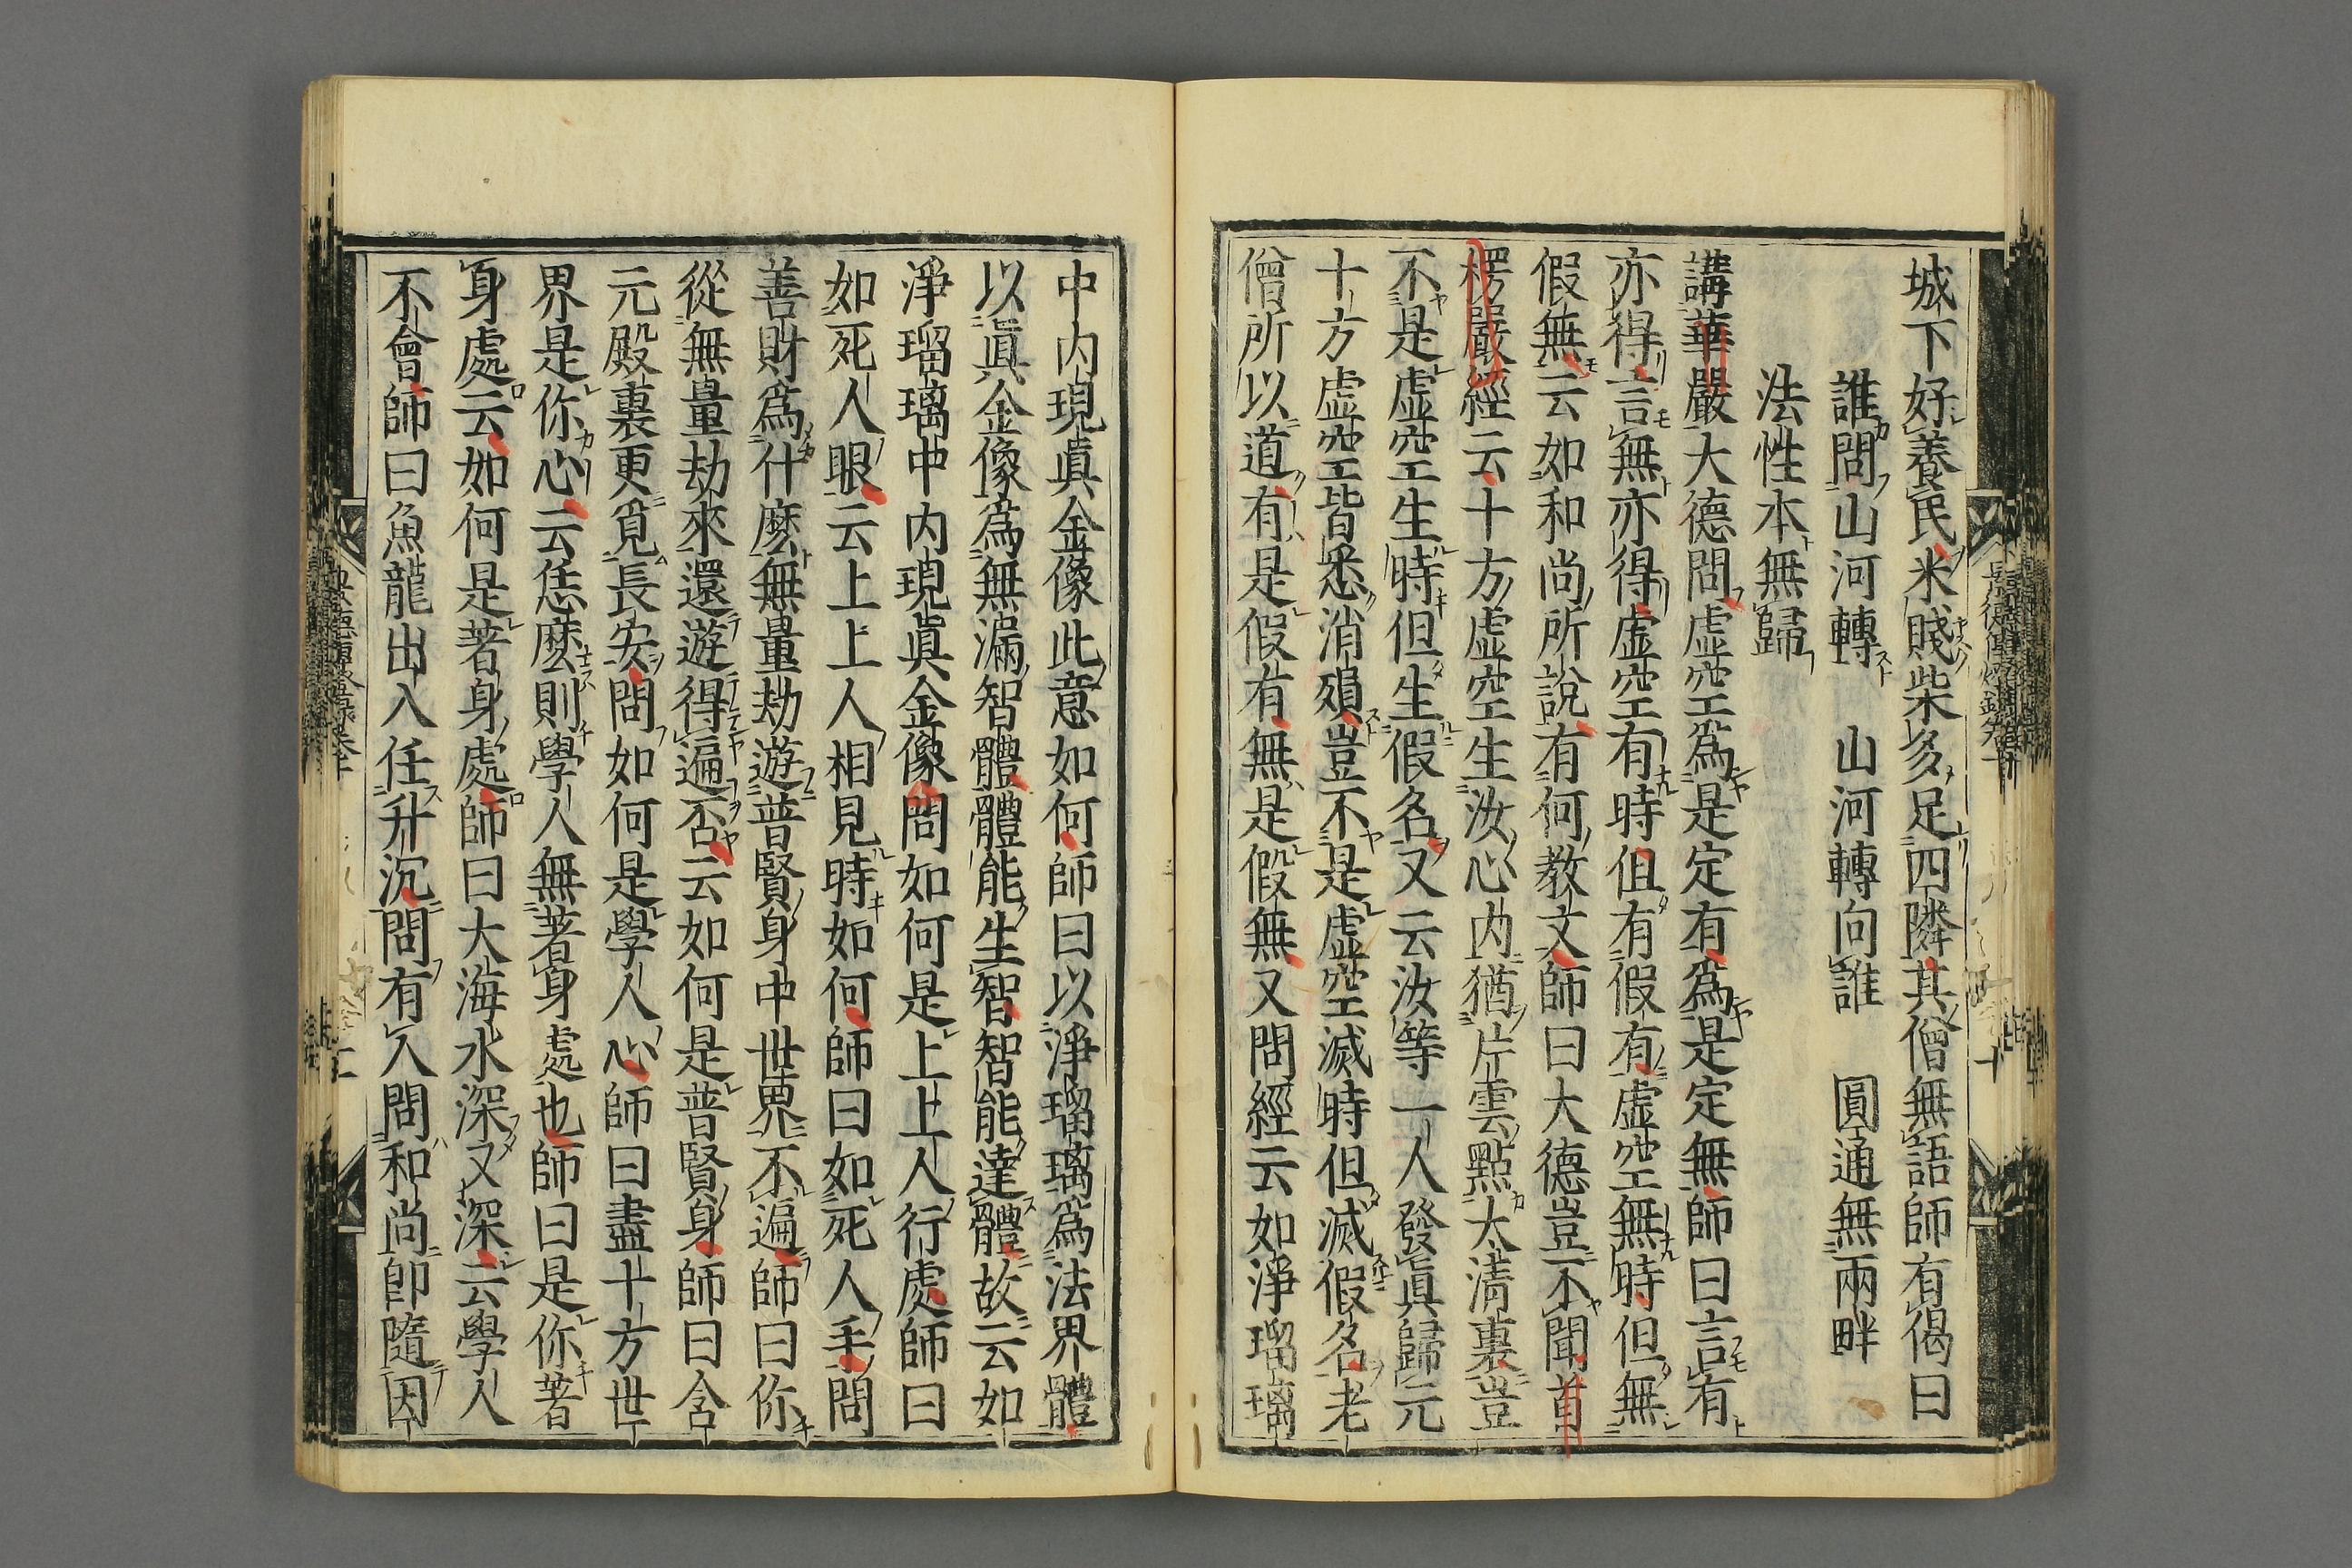 城下好養民米賤柴多足四隣其僧無語師有偈曰
誰問山河轉　山河轉向誰　圓通無兩畔
法性本無歸
講華嚴大德問虛空爲是定有爲是定無師曰言有
亦得言無亦得虛空有時但有假有虛空無時但無
假無云如和尚所說有何教文師曰大德豈不聞首
楞嚴經云十方虛空生汝心内猶片雲點太淸裏豈
不是虛空生時但生假名又云汝等一人發眞歸元
十方虛空皆悉消殞豈不是虛空滅時但滅假名老
僧所以道有是假有無是假無又問經云如淨瑠璃
中内現眞金像此意如何師曰以淨瑠璃爲法界體
以眞金像爲無漏智體體能生智智能達體故云如
淨瑠璃中内現眞金像問如何是上上人行處師曰
如死人眼云上上人相見時如何師曰如死人手問
善財爲什麼無量劫遊普賢身中世界不遍師曰你
從無量劫來還遊得遍否云如何是普賢身師曰含
元殿裏更覓長安問如何是學人心師曰盡十方世
界是你心云恁麼則學人無著身處也師曰是你著
身處云如何是著身處師曰大海水深又深云學人
不會師曰魚龍出入任升沉問有人問和尚卽隨因